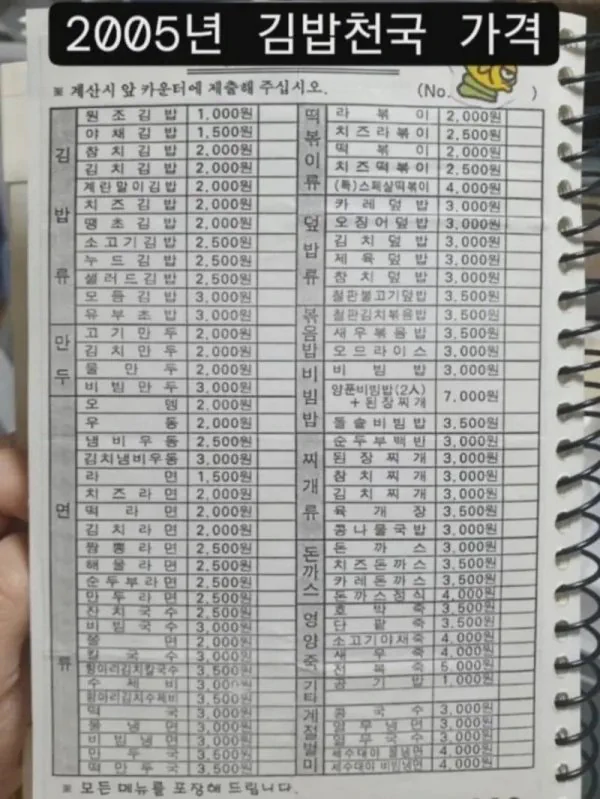 2005년 김밥천국 가격
※ 계산시 앞 카운터에 제출해 주십시오. (No. )
김밥류
원조김밥 1,000원
야채김밥 1,500원
참치김밥 2,000원
김치김밥 2,000원
계란말이김밥 2,000원
치즈김밥 2,000원
땡초김밥 2,000원
소고기김밥 2,500원
누드김밥 2,500원
샐러드김밥 2,500원
모듬김밥 3,000원
유부초밥 3,000원
만두
고기만두 2,000원
김치만두 2,000원
물만두 2,000원
비빔만두 3,000원
면류
오뎅 2,000원
우동 2,000원
냄비우동 2,500원
김치냄비우동 3,000원
라면 1,500원
치즈라면 2,000원
떡라면 2,000원
김치라면 2,000원
짬뽕라면 2,500원
해물라면 2,500원
순두부라면 2,500원
만두라면 2,500원
잔치국수 2,500원
비빔국수 3,000원
쫄면 2,000원
칼국수 3,000원
항아리김치칼국수 3,500원
수제비 3,000원
항아리김치수제비 3,500원
떡국 3,000원
물냉면 3,000원
비빔냉면 3,000원
만두국 3,500원
떡만두국 3,500원
떡볶이류
라볶이 2,000원
치즈라볶이 2,500원
떡볶이 2,000원
치즈떡볶이 2,500원
(특)스페샬떡볶이 4,000원
덮밥류
카레덮밥 3,000원
오징어덮밥 3,000원
김치덮밥 3,000원
제육덮밥 3,000원
참치덮밥 3,000원
철판불고기덮밥 3,500원
볶음밥
철판김치볶음밥 3,500원
새우볶음밥 3,500원
오므라이스 3,000원
비빔밥
비빔밥 3,000원
양푼비빔밥(2人)
+된장찌개 7,000원
돌솥비빔밥 3,500원
찌개류
순두부백반 3,000원
된장찌개 3,000원
참치찌개 3,000원
김치찌개 3,000원
육개장 3,500원
콩나물국밥 3,000원
돈까스
돈까스 3,000원
치즈돈까스 3,500원
카레돈까스 3,500원
돈까스정식 4,000원
영양죽
호박죽 3,500원
단팥죽 3,500원
소고기야채죽 4,000원
새우죽 4,000원
전복죽 5,000원
기타
공기밥 1,000원
계절별미
콩국수 3,000원
열무냉면 3,000원
세수대야 물냉면 4,000원
세수대야 비빔냉면 4,000원
※ 모든 메뉴를 포장해 드립니다.